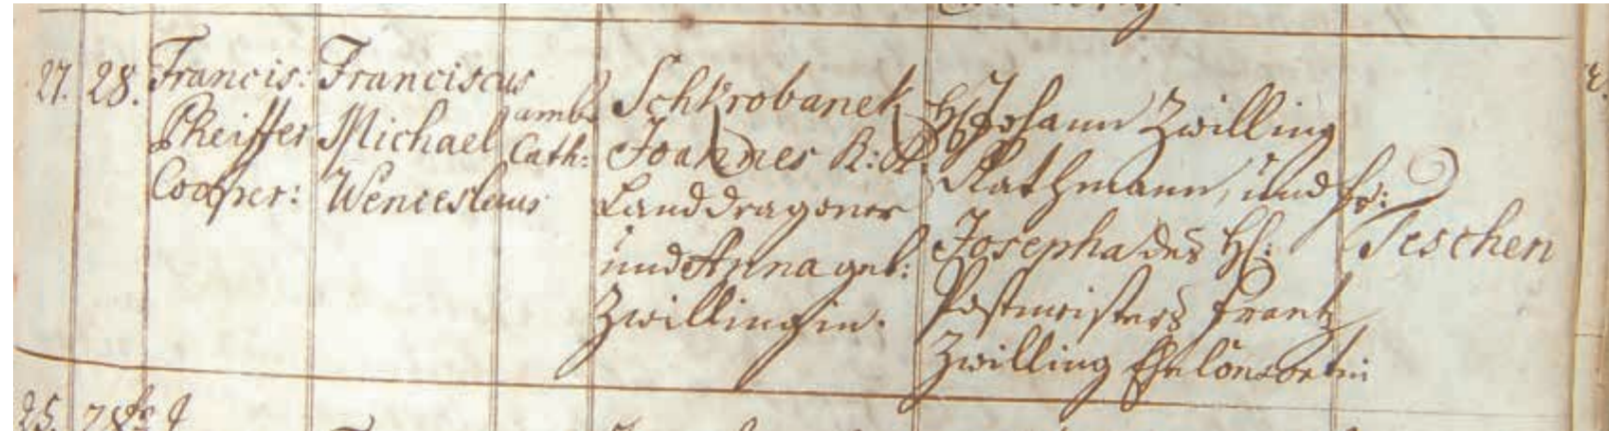 27. 28. Francis: Pheiffer Cooper:
Franciscus Michael Wenceslaus
amb: Cath:
Schkrobanek
Joannes K: K
Landdragoner
und Anna geb:
Zwillingin.
H: Johann Zwilling
Rathmann, und fr:
Josepha des H:
Postmeisters Frantz
Zwilling Ehe
Teschen
25. 28